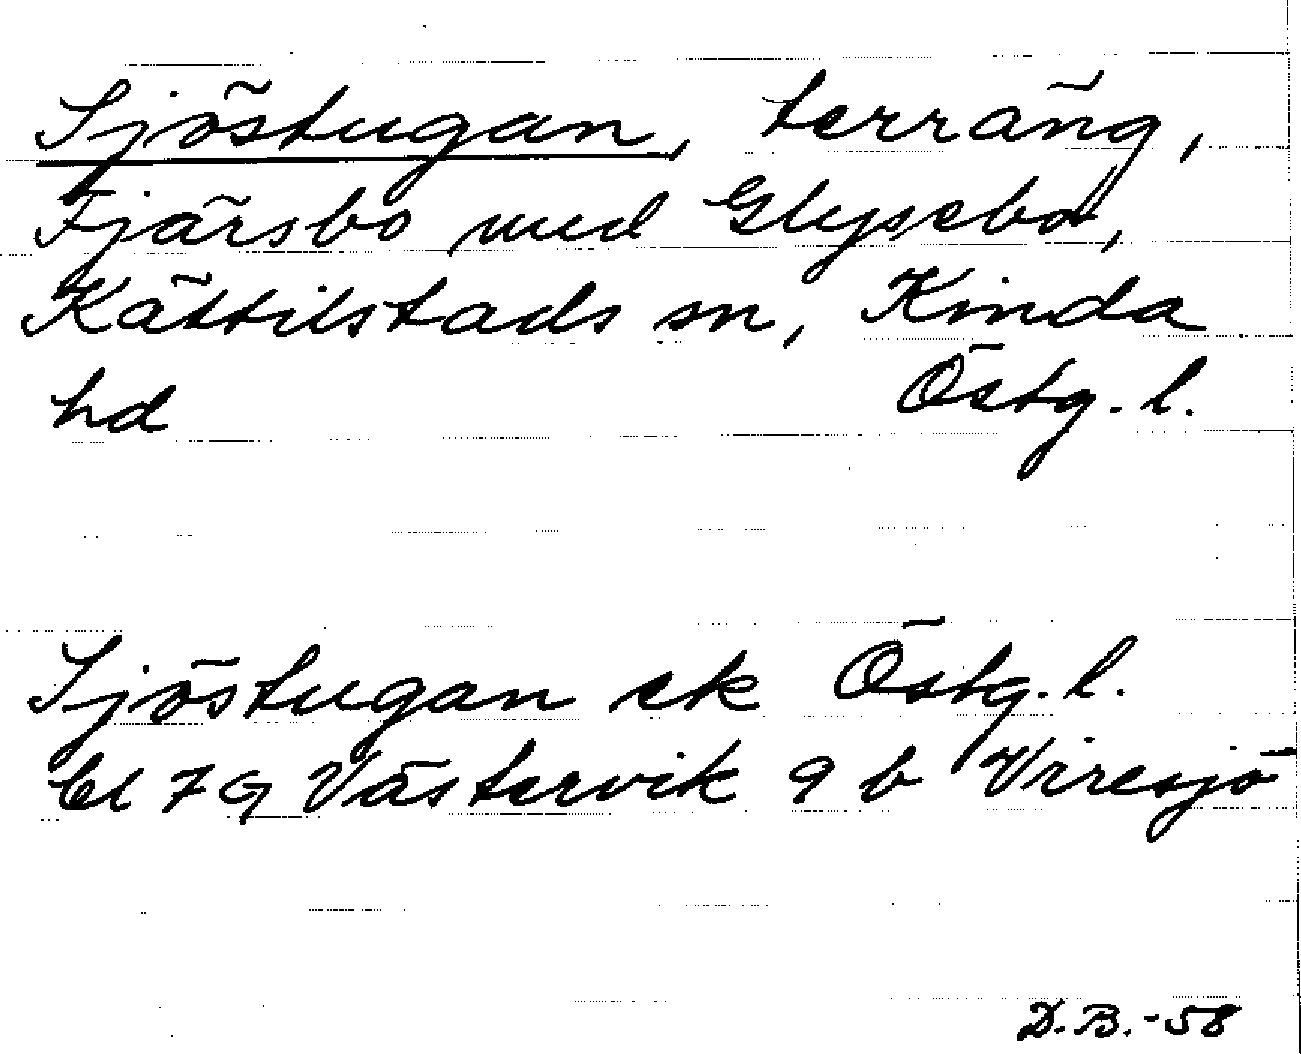 Sjöstugan, terräng,
Fjärsbo med Glysebo,
Kättilstads sn, Kinda
hd Östg. l.
Sjöstugan ek Östg. l.
bl 7G Västervik 9 b Viresjö
D.B.-58